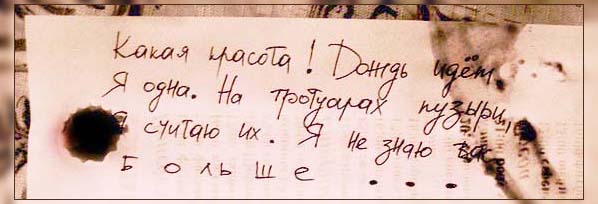 Какая красота! Дождь идёт.
Я одна. На тротуарах пузыри,
Я считаю их. Я не знаю вас
Больше ...